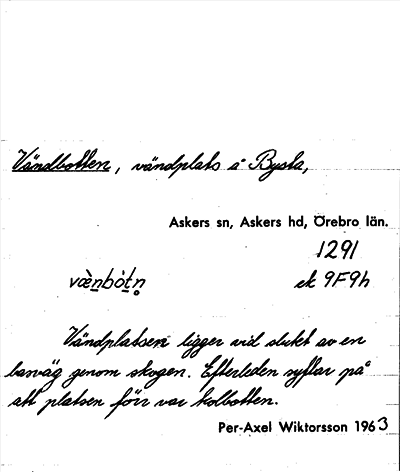 Vändbotten, vändplats å Bysta,
Askers sn, Askers hd, Örebro län.
1291
væ̀nbòtn̥ ek 9F9h
Vändplatsen ligger vid slutet av en
basväg genom skogen. Efterleden syftar på
att platsen förr var kolbotten.
Per-Axel Wiktorsson 1963